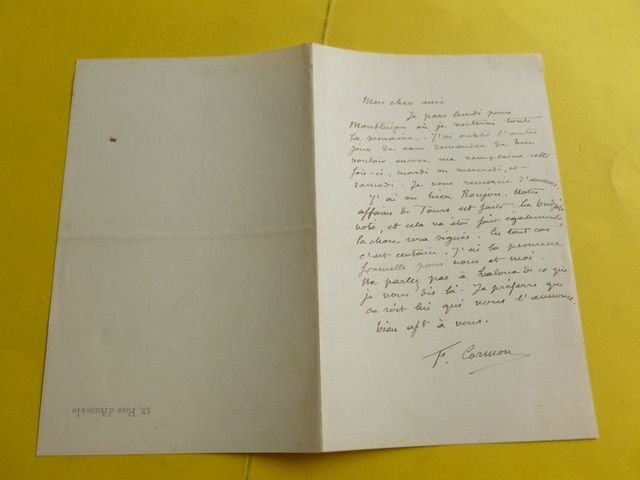 Mon cher ami
Je pars lundi pour
Montluçon où je resterai toute
la semaine. J'ai oublié l'autre
jour de vous demander de bien
vouloir encore me remplacer cette
fois-ci, mardi ou mercredi, et
samedi. Je vous remercie d'avance.
J'ai vu hier Roujon. Notre
affaire de Tours est faite. Le budget
voté, et cela va être fait également
la chose sera signée. En tout cas
c'est certain. J'ai la promesse
formelle pour vous et moi.
Ne parlez pas à de ce que
je vous dis là. Je préfère que
ce soit lui qui vous l'annonce.
bien afft à vous.
F. Cormon
13, Rue d'Aumale